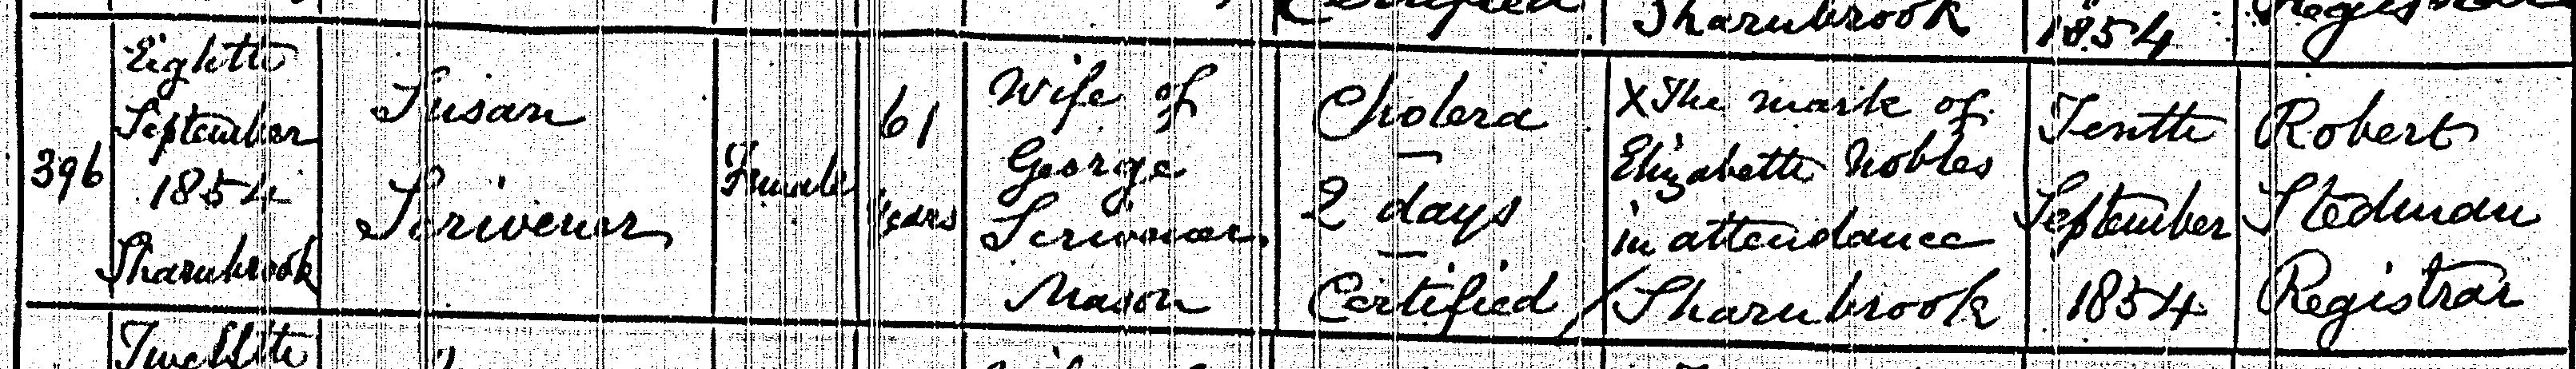 Certified
Sharnbrook
1854
Registrar
396
Eighth
September
1854
Sharnbrook
Susan
Scrivener
Female
61
years
Wife of
George
Scrivener
Mason
Cholera
2 days
Certified
X The mark of
Elizabeth Nobles
in attendance
Sharnbrook
Tenth
September
1854
Robert
Stedman
Registrar
Twelfth